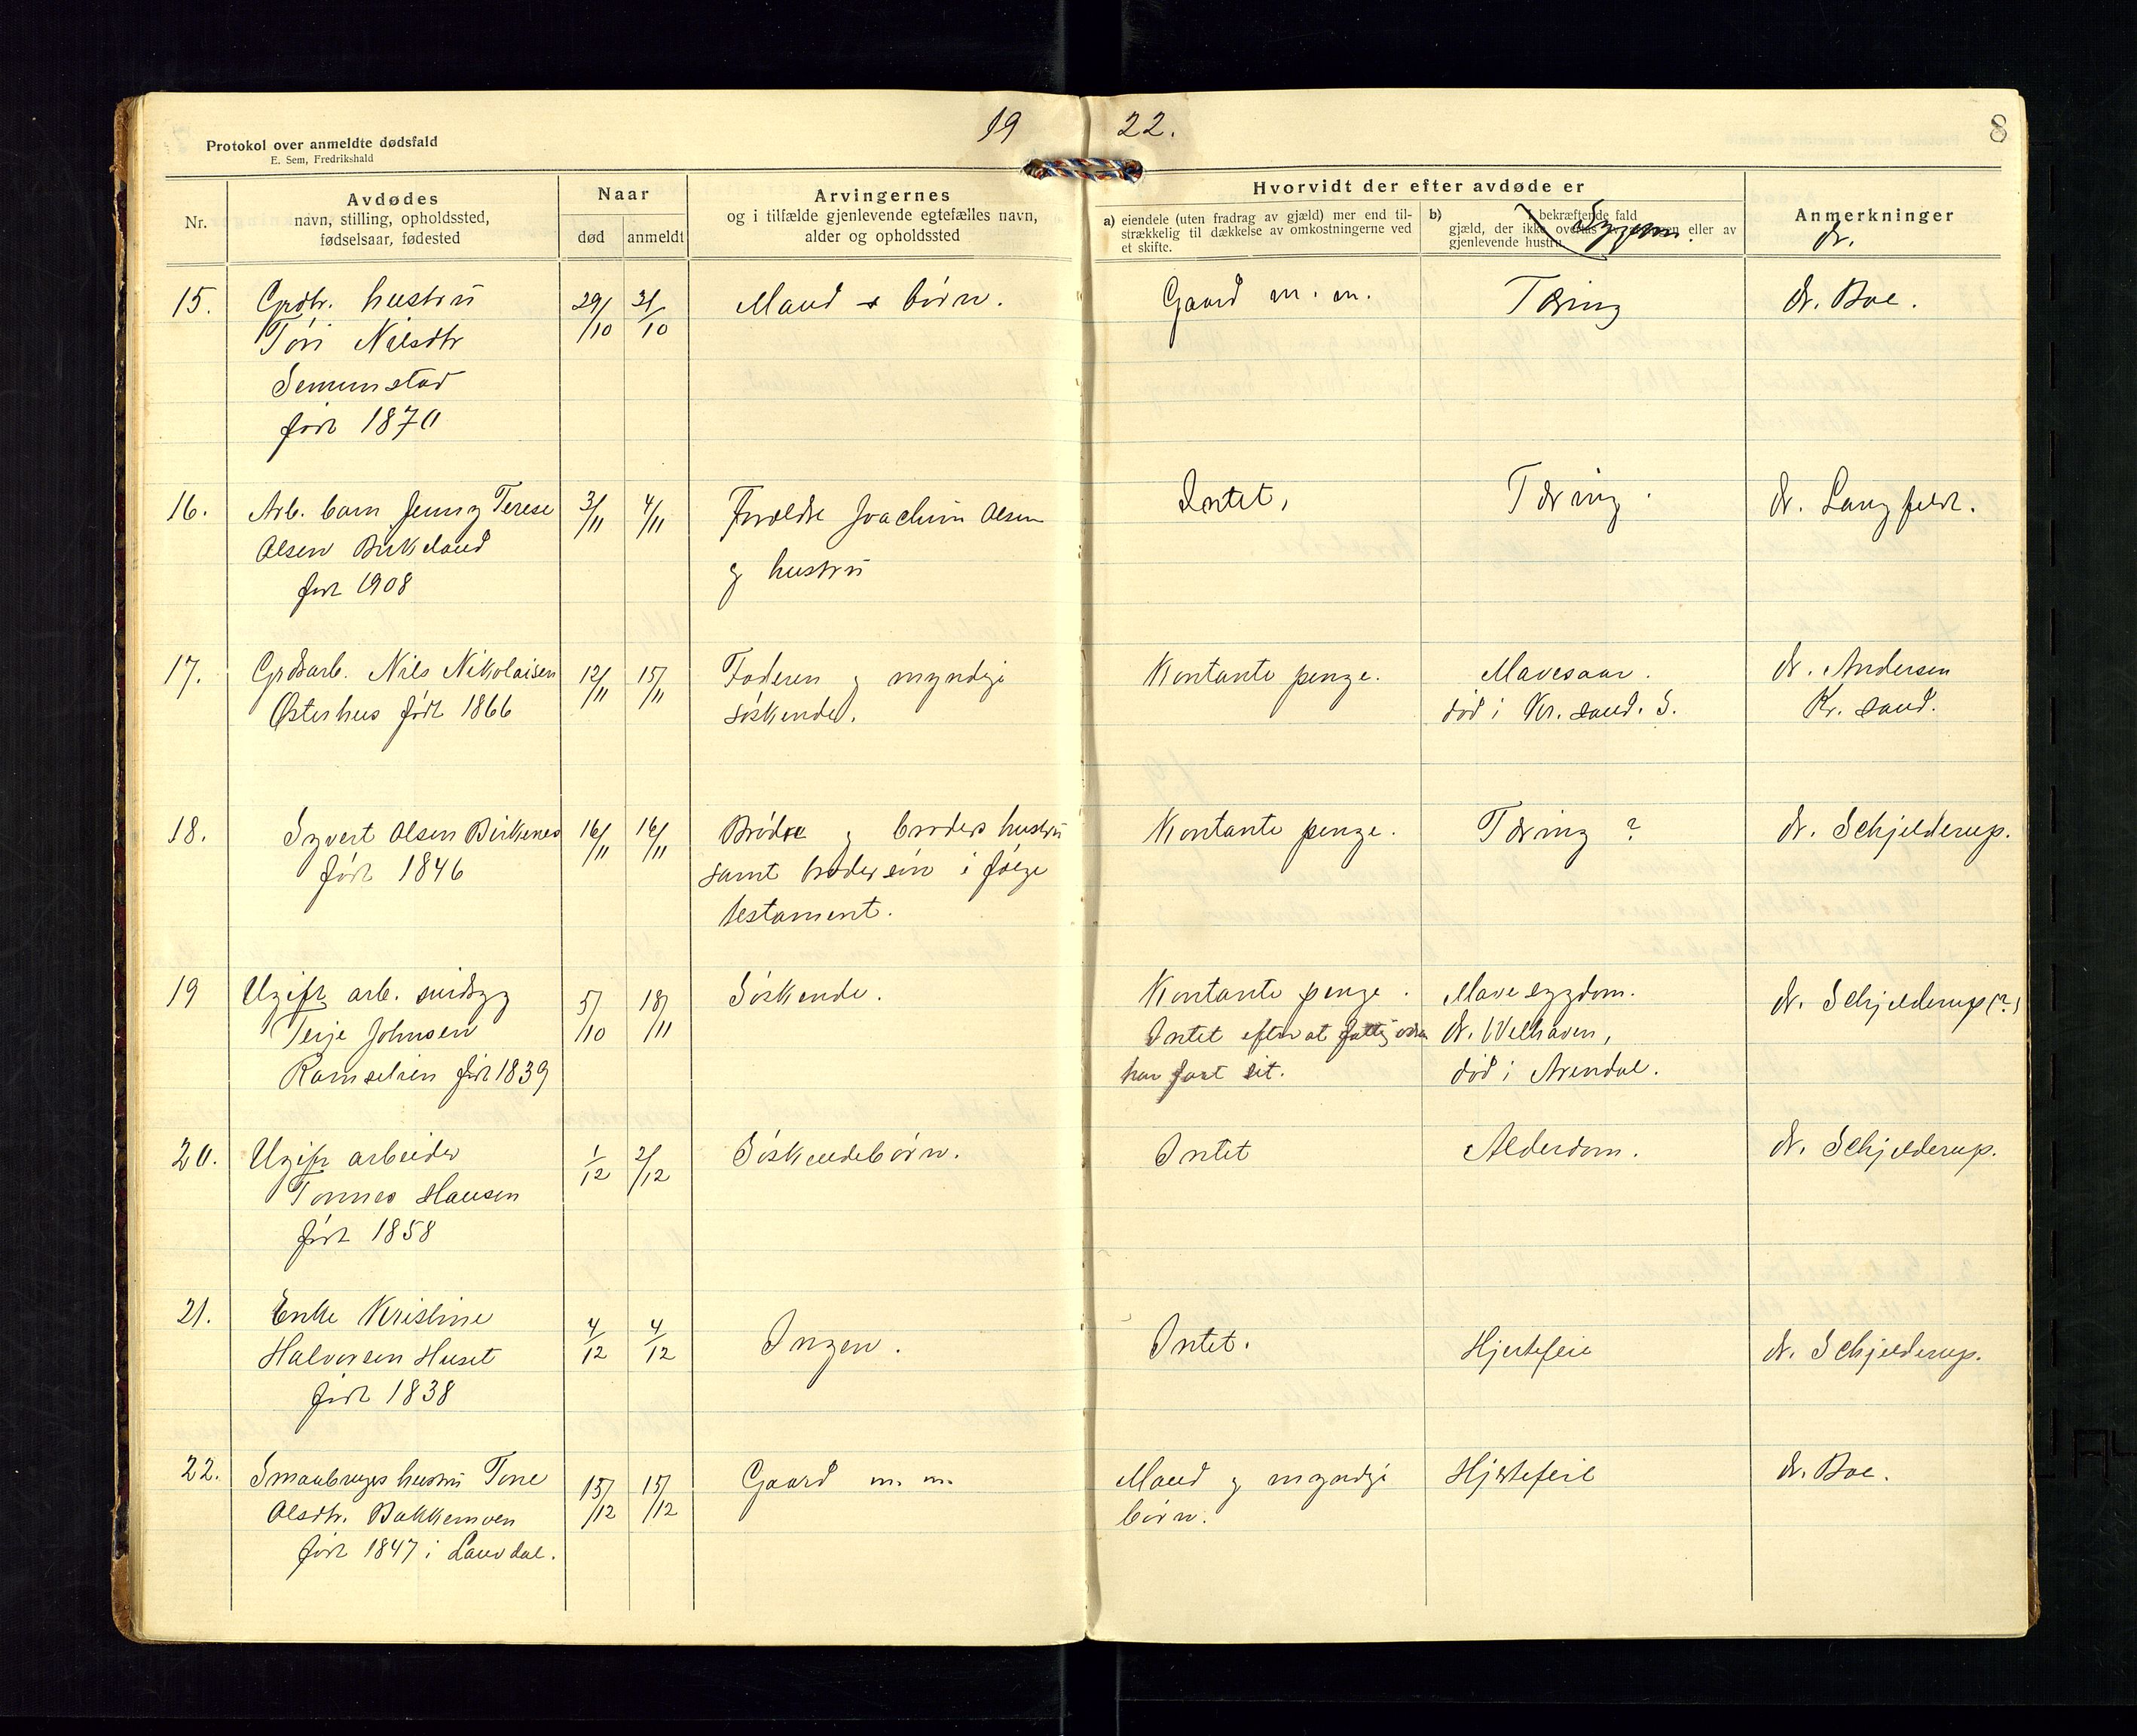 Protokol over anmeldte dødsfald
E. Sem, Fredrikshald
19 22.
8
Nr.
Avdødes
navn, stilling, opholdssted,
fødselsaar, fødested
Naar
død anmeldt
Arvingernes
og i tilfælde gjenlevende egtefælles navn,
alder og opholdssted
Hvorvidt der efter avdøde er
a) eiendele (uten fradrag av gjæld) mer end til-
strækkelig til dækkelse av omkostningerne ved
et skifte.
b) I bekræftende fald
gjæld, der ikke overtas eller av
gjenlevende hustru
Sygdom.
Anmerkninger
dr.
15. Grdbr. hustru 29/10 31/10 Mand + börn. Gaard m. m. Tæring dr. Boe.
Töri Nilsdtr
Semmstad
föd 1870
16. Arb. barn Jenny Terese 3/11 4/11 Forældre Joachim Olsen Intet, Tæring. dr. Langfeldt.
Olsen Birkeland
og hustru
föd 1908
17. Grdsarb. Nils Nikolaisen 12/11 15/11 Faderen og myndige Kontante penge. Mavesaar. dr. Andersen
Østerhus född 1866 söskende. död i Kr. sand. S. Kr. sand.
18. Syvert Olsen Birkenes 16/11 16/11 Brödre og broders hustru Kontante penge. Tæring? dr. Schjelderup.
född 1846 samt brodersön i fölge
testament.
19 Ugift arb. 5/10 18/11 Söskende. Kontante penge. Mavesygdom. dr. Schjelderup(?)
Terje Johnsen Intet efter at fattigvæsn dr. Welhaven,
Ramselien född 1839 har faat sit. död i Arendal.
20. Ugift arbeider 1/12 2/12 Söskendebörn. Intet Alderdom. dr. Schjelderup.
Tönnes Hansen
född 1858
21. Enke Kristine 4/12 4/12 Ingen. Intet. Hjertefeil dr. Schjelderup.
Halvorsen Huset
född 1838
22. Smaabrugers hustru Tone 13/12 15/12 Gaard m. m. Mand og myndige Hjertefeil dr. Boe.
Olsdtr. Bakkemoen börn.
född 1847 i Laudal.